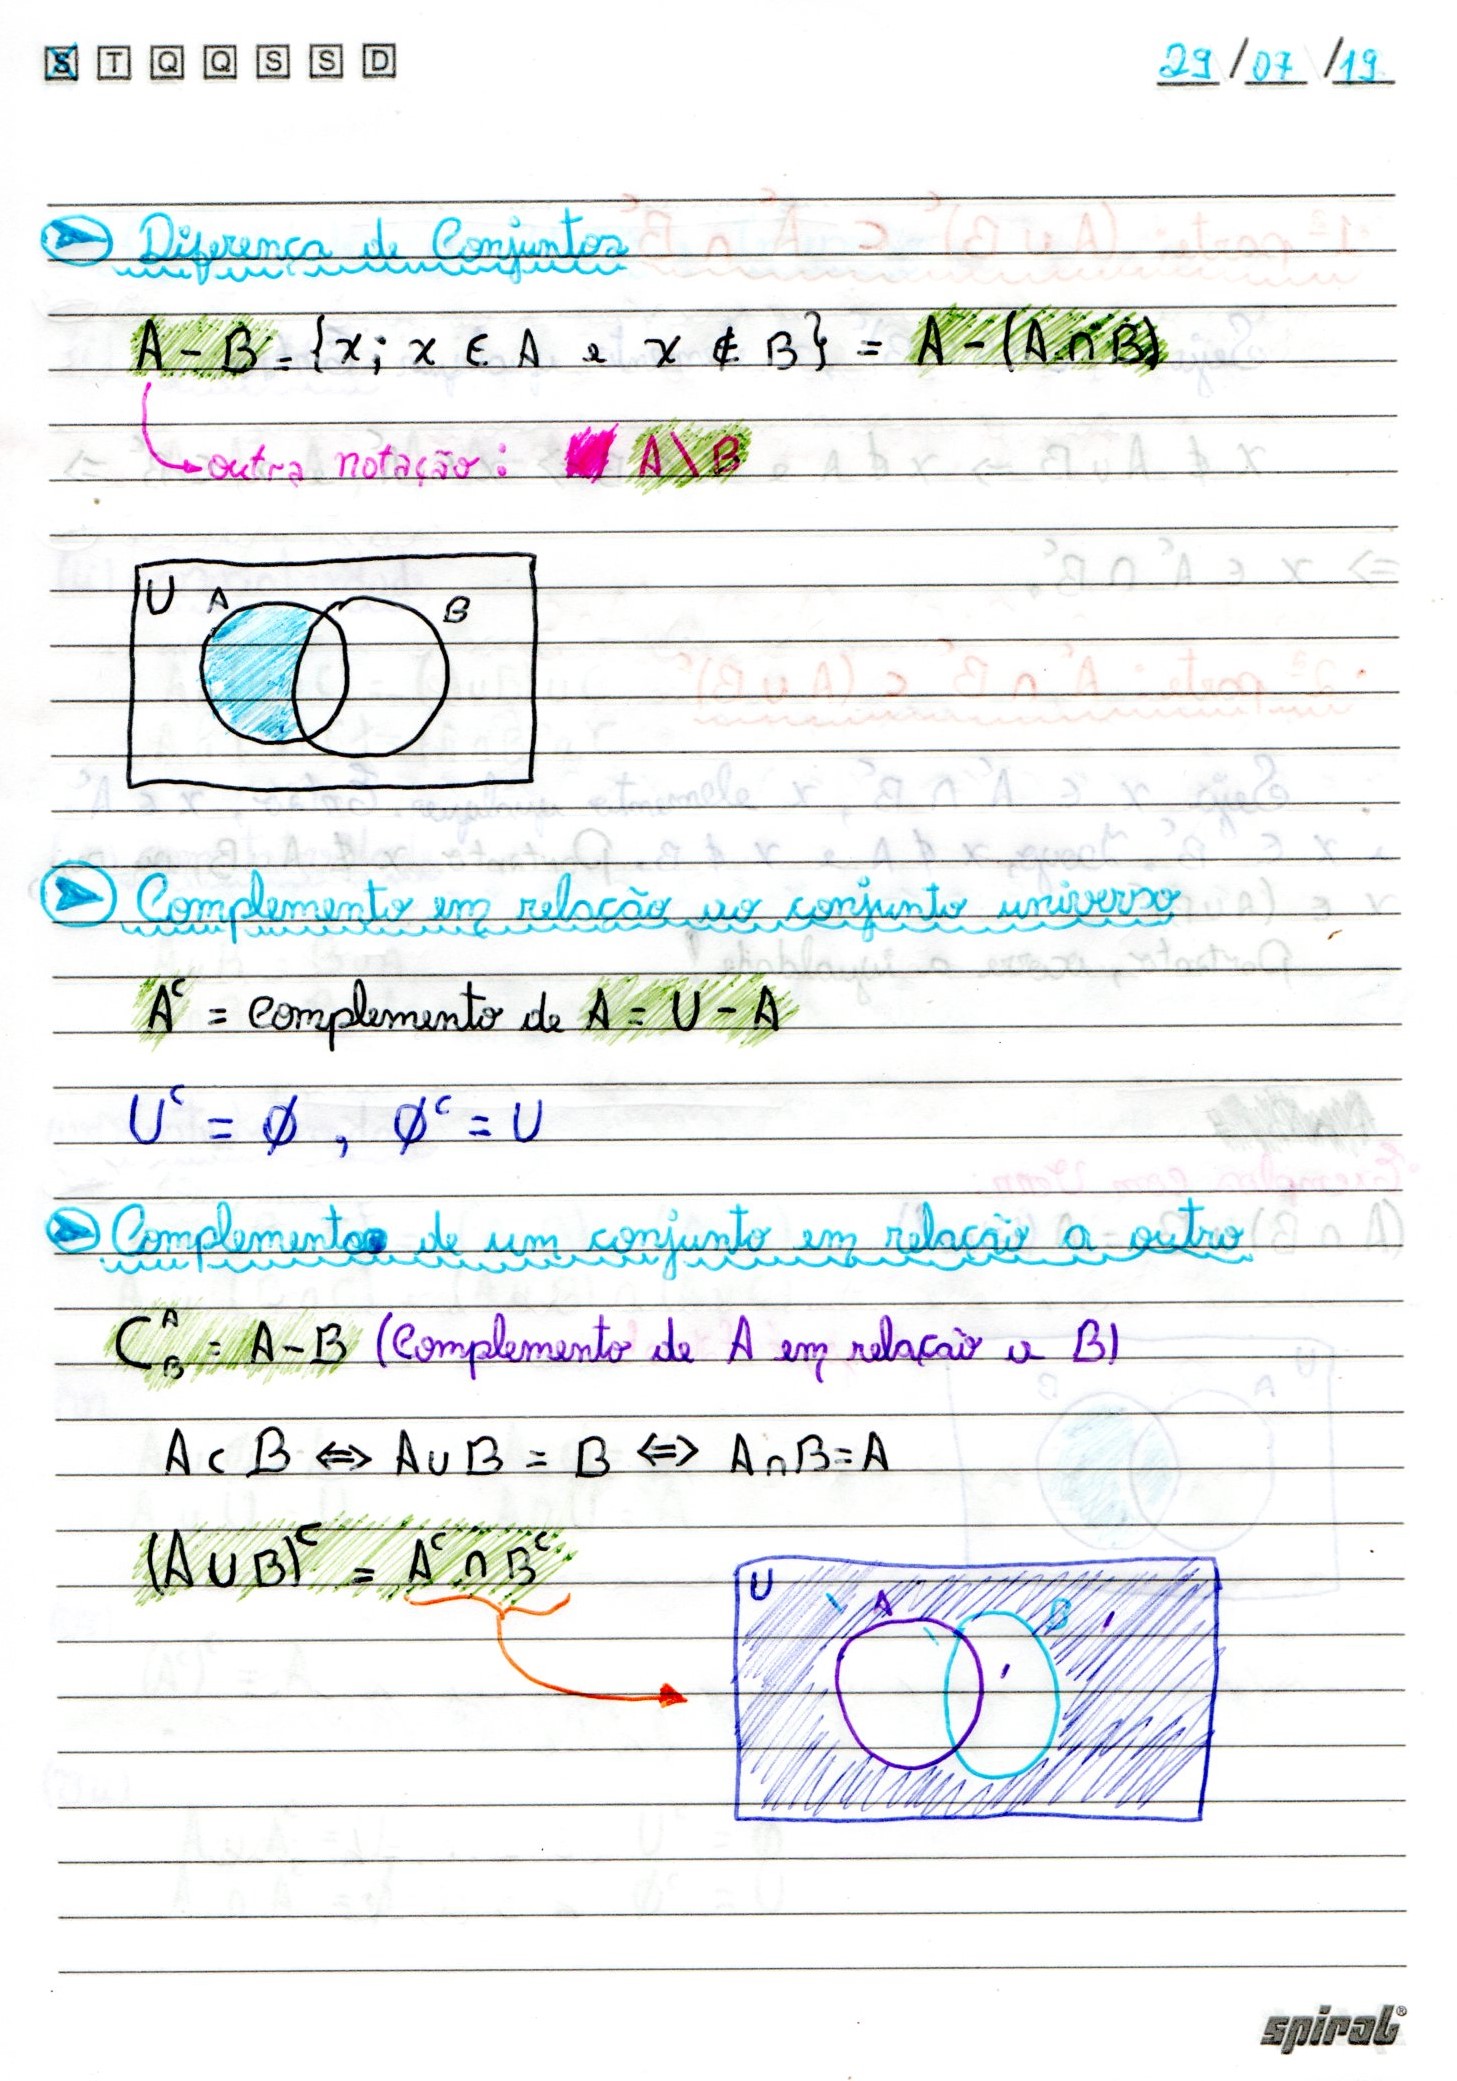 S T Q Q S S D 29/07/19
Diferença de Conjuntos
A - B = {x; x ∈ A e x ∉ B} = A - (A ∩ B)
outra notação: A \ B
U A B
Complemento em relação ao conjunto universo
Aᶜ = Complemento de A = U - A
Uᶜ = ∅ , ∅ᶜ = U
Complemento de um conjunto em relação a outro
C_B^A = A - B (Complemento de A em relação a B)
A ⊂ B ⇔ A ∪ B = B ⇔ A ∩ B = A
(A ∪ B)ᶜ = Aᶜ ∩ Bᶜ
U A B
spiral®